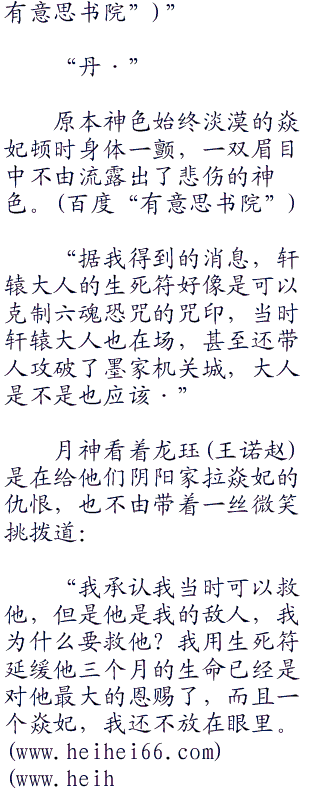 有意思书院”)”
“丹·”
原本神色始终淡漠的焱
妃顿时身体一颤，一双眉目
中不由流露出了悲伤的神
色。(百度“有意思书院”)
“据我得到的消息，轩
辕大人的生死符好像是可以
克制六魂恐咒的咒印，当时
轩辕大人也在场，甚至还带
人攻破了墨家机关城，大人
是不是也应该·”
月神看着龙珏(王诺赵)
是在给他们阴阳家拉焱妃的
仇恨，也不由带着一丝微笑
挑拨道：
“我承认我当时可以救
他，但是他是我的敌人，我
为什么要救他？我用生死符
延缓他三个月的生命已经是
对他最大的恩赐了，而且一
个焱妃，我还不放在眼里。
(www.heihei66.com)
(www.heih